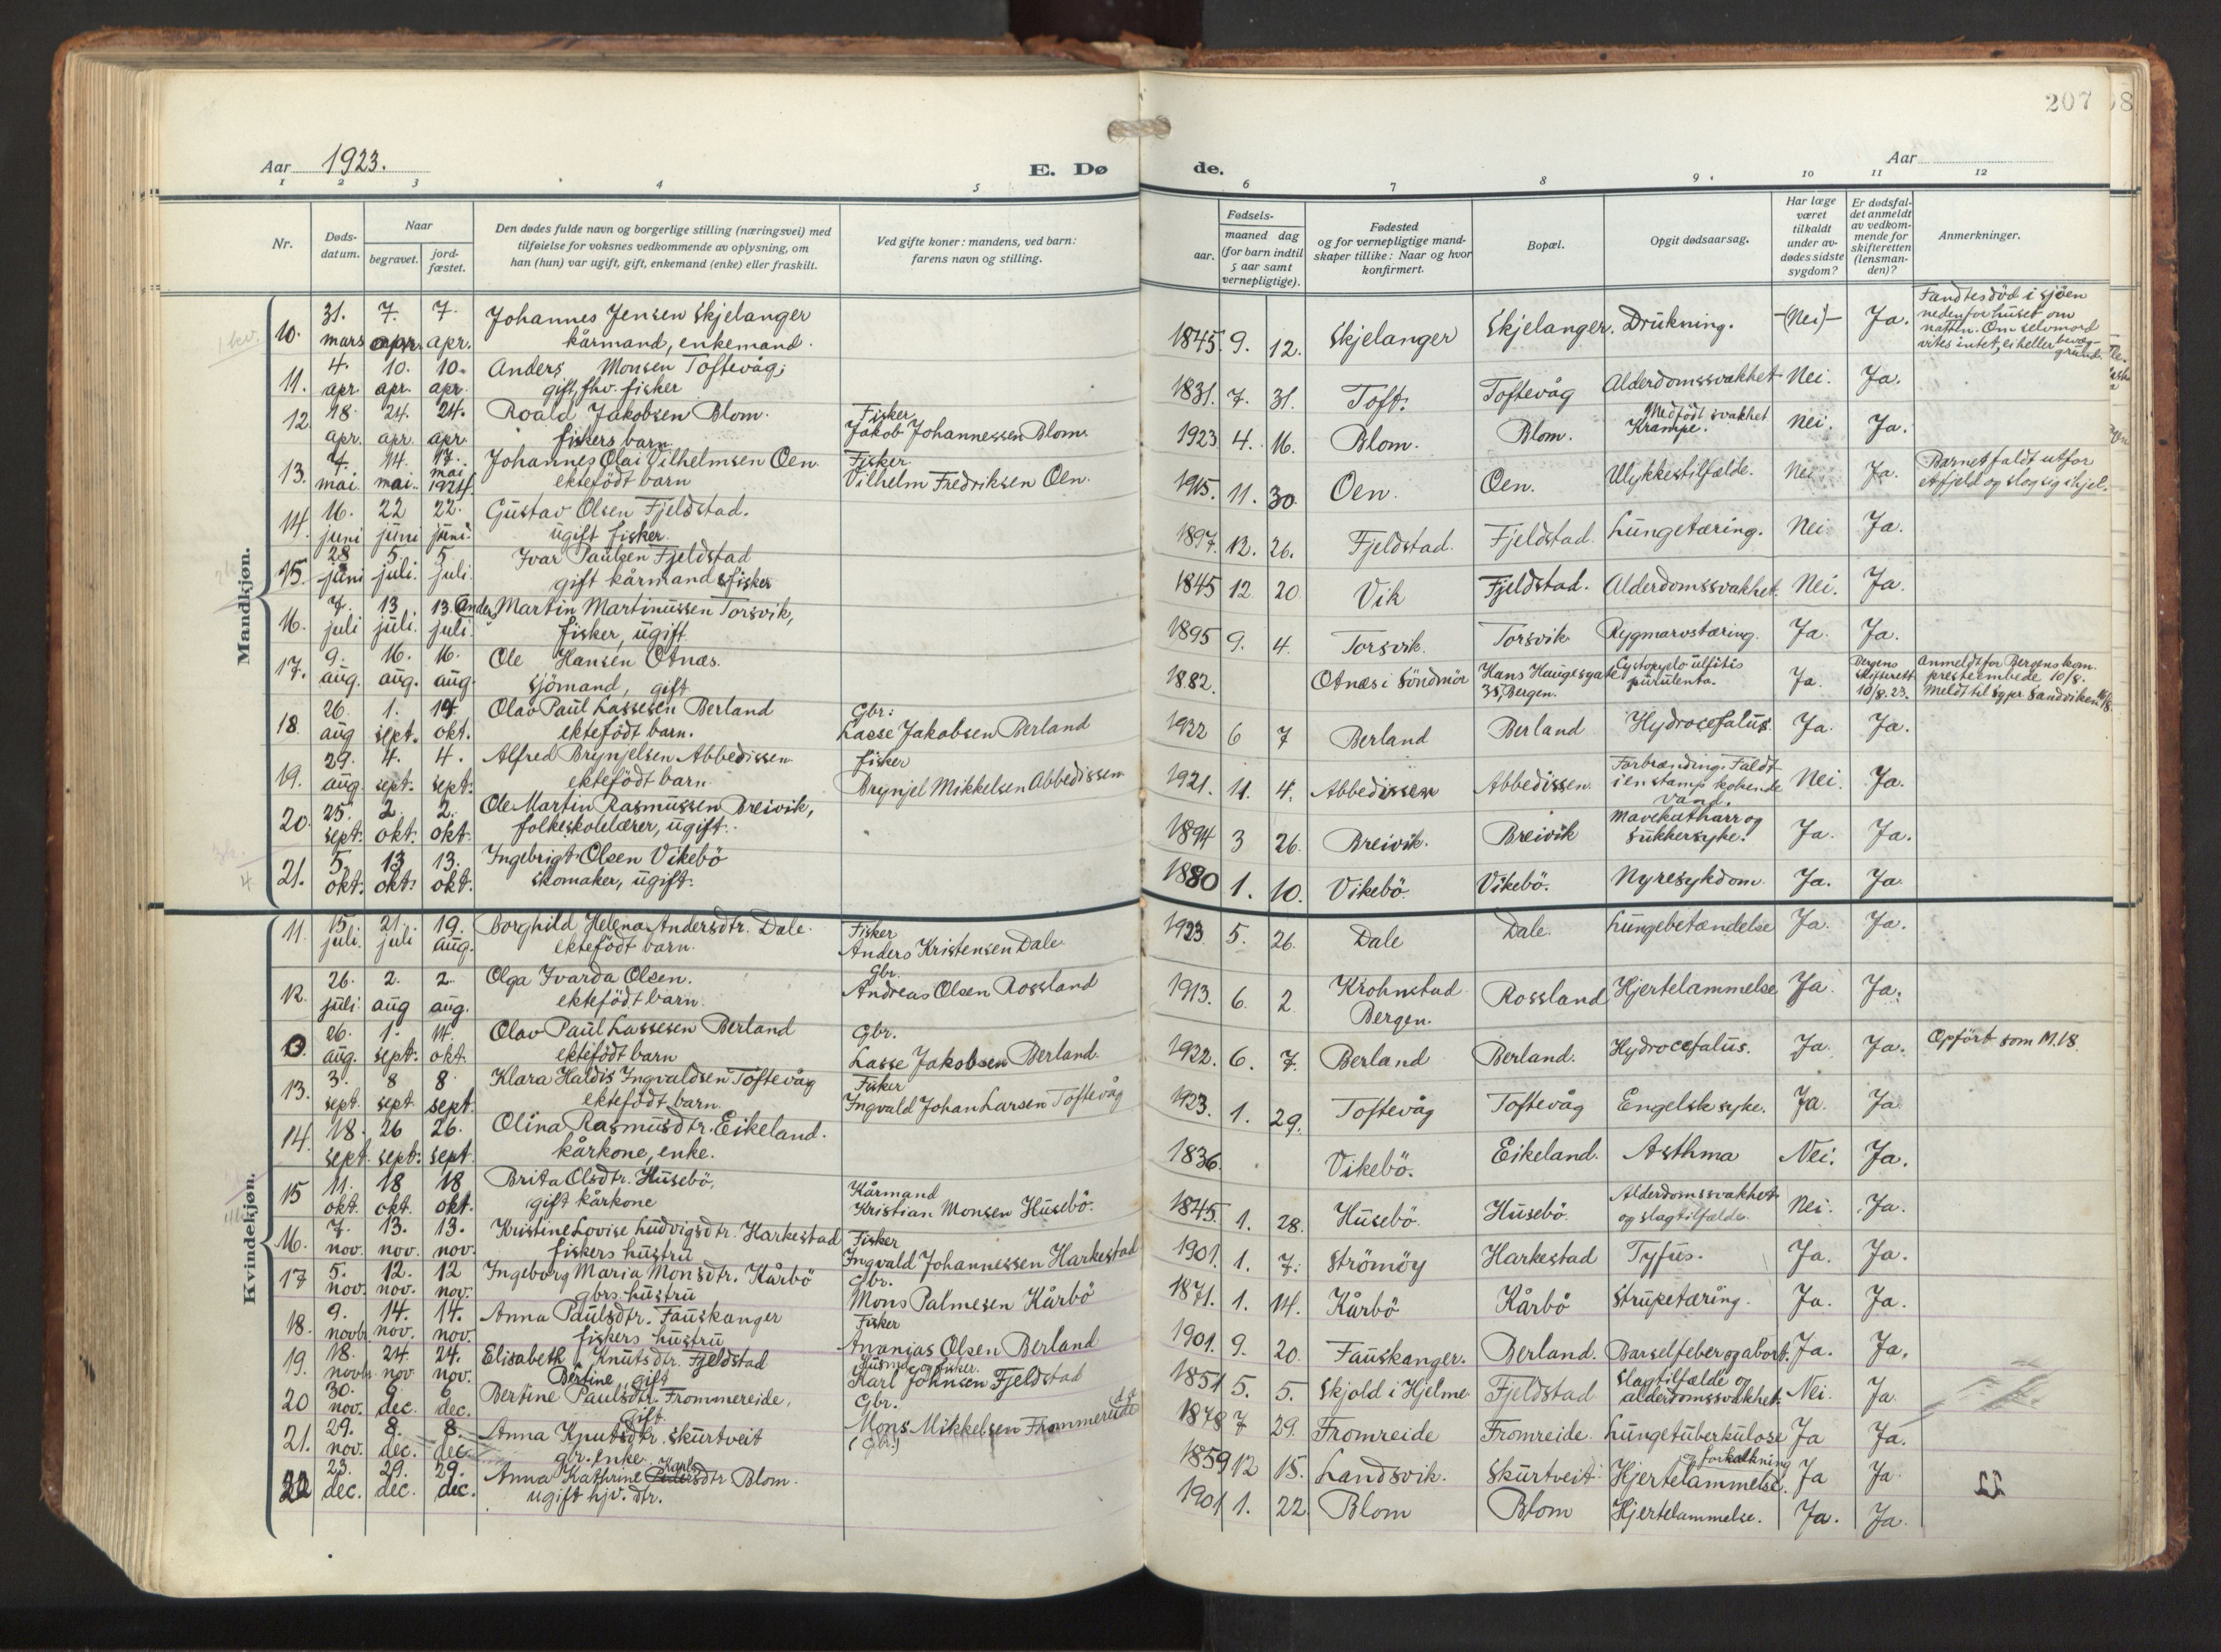 207
Aar 1923.
E. Dø
de.
Aar
1 2 3 4 5 6 7 8 9 10 11 12
Nr.
Døds-
datum.
Naar
begravet.
jord-
fæstet.
Den dødes fulde navn og borgerlige stilling (næringsvei) med
tilføielse for voksnes vedkommende av oplysning, om
han (hun) var ugift, gift, enkemand (enke) eller fraskilt.
Ved gifte koner: mandens, ved barn:
farens navn og stilling.
Fødsels-
aar.
maaned dag
(for barn indtil
5 aar samt
vernepligtige).
Fødested
og for vernepligtige mand-
skaper tillike: Naar og hvor
konfirmert.
Bopæl.
Opgit dødsaarsag.
Har læge
været
tilkaldt
under av-
dødes sidste
sygdom?
Er dødsfal-
det anmeldt
av vedkom-
mende for
skifteretten
(lensman-
den)?
Anmerkninger.
Mandkjøn.
10. 31. mars 7. apr. 7. apr. Johannes Jensen Skjelanger
kårmand, enkemand.
1845. 9. 12. Skjelanger Skjelanger. Drukning. (Nei) Ja. Fandtes död i sjöen
nedenfor huset om
natten. Om selvmord
vites intet, ei heller bevæg-
grund.
11. 4. apr. 10. apr. 10. apr Anders Monsen Toftevåg,
gift, fhv. fisker
1831. 7. 31. Toft. Toftevåg Alderdomssvakhet Nei. Ja.
12 18. apr. 24. apr. 24. apr. Roald Jakobsen Blom.
fiskers barn.
Fisker
Jakob Johannessen Blom.
1923 4. 16. Blom. Blom. Medfödt svakhet
Krampe. Nei. Ja.
13. 7. mai. 14. mai. 17. mai 1924. Johannes Olai Vilhelmsen Oen.
ektefödt barn
Fisker
Vilhelm Fredriksen Oen.
1915. 11. 30. Oen. Oen. Ulykkestilfælde. Nei. Ja. Barnet faldt utfor
et fjeld og slog sig ihjel.
14. 16. juni 22 juni 22. juni. Gustav Olsen Fjeldstad.
ugift fisker.
1897. 12. 26. Fjeldstad. Fjeldstad. Lungetæring. Nei. Ja.
15. 28 juni 5. juli. 5. juli. Ivar Paulsen Fjeldstad
gift kårmand & fisker
1845 12 20 Vik Fjeldstad. Alderdomssvakhet. Nei. Ja.
16. 7. juli 13. juli. 13. juli. Anders Martin Martinussen Torsvik,
fisker, ugift.
1895 9. 4. Torsvik. Torsvik. Rygmarvstæring. Ja. Ja.
17. 9. aug. 16. aug. 16. aug. Ole Hansen Otnæs.
sjömand, gift
1882. Otnæs i Söndmör Hans Haugesgate
35, Bergen. Cystopyelo ulfitis
purulenta. Ja. Bergens
skifterett
10/8. 23. Anmeldt for Bergens kom.
presteembede 10/8.
Meldt til sgpr. Sandviken
18. 26. aug 1. sept. 14. okt. Olav Paul Lassesen Berland
ektefödt barn.
Gbr.
Lasse Jakobsen Berland
1922 6 7 Berland Berland Hydrocefalus. Ja. Ja.
19. 29. aug. 4. sept. 4. sept. Alfred Brynjelsen Abbedissen
ektefödt barn.
Fisker
Brynjel Mikkelsen Abbedissen
1921. 11. 4. Abbedissen Abbedissen. Forbrænding. Faldt
i en stamp kokende
vand. Nei. Ja.
20. 25. sept. 2. okt. 2. okt. Ole Martin Rasmussen Breivik,
folkeskolelærer, ugift.
1894 3 26. Breivik. Breivik Mavekatharr og
sukkersyke. Ja. Ja.
21. 5. okt. 13 okt. 13. okt. Ingebrigt Olsen Vikebö
skomaker, ugift.
1880 1. 10. Vikebö. Vikebö. Nyresykdom. Ja. Ja.
Kvindekjøn.
11. 15. juli. 21. juli 19. aug. Borghild Helena Andersdtr. Dale.
ektefödt barn.
Fisker
Anders Kristensen Dale.
1923. 5. 26. Dale Dale. Lungebetændelse Ja. Ja.
12. 26. juli 2. aug 2. aug. Olga Ivarda Olsen.
ektefödt barn.
Gbr.
Andreas Olsen Rossland
1913. 6. 2. Krohnstad
Bergen. Rossland Hjertelammelse Ja. Ja.
26. aug. 1. sept. 14. okt. Olav Paul Lassesen Berland
ektefödt barn
Gbr.
Lasse Jakobsen Berland.
1922. 6. 7. Berland Berland. Hydrocefalus. Ja. Ja. Opfört som M.18.
13. 3. sept. 8 sept. 8 sept. Klara Haldis Ingvaldsen Toftevåg
ektefödt barn.
Fisker
Ingvald Johan Larsen Toftevåg
1923. 1. 29. Toftevåg Toftevåg Engelsk syke. Ja. Ja
14. 18. sept. 26 sept. 26. sept. Olina Rasmusdtr. Eikeland.
kårkone, enke.
1836. Vikebö. Eikeland. Asthma Nei. Ja.
15 11. okt. 18 okt. 18 okt. Brita Olsdtr. Husebö,
gift kårkone
Kårmand
Kristian Monsen Husebö.
1845. 1. 28. Husebö. Husebö. Alderdomssvakhet
og slagtilfælde. Nei. Ja.
16. 7. nov. 13. nov. 13. nov. Kristine Lovise Ludvigsdtr. Harkestad
fiskers hustru
Fisker
Ingvald Johannessen Harkestad
1901. 1. 7. Strömöy Harkestad Tyfus. Ja. Ja.
17 5. nov. 12. nov. 12 nov. Ingeborg Maria Monsdtr. Kårbö
gbrs. hustru
Gbr.
Mons Palmesen Kårbö
1871. 1. 14. Kårbö Kårbö Strupetæring. Ja. Ja.
18. 9. novbr. 14. nov. 14. nov. Anna Paulsdtr. Fauskanger
fiskers hustru
Fisker
Ananias Olsen Berland
1901. 9. 20. Fauskanger. Berland. Barselfeber og abort. Ja. Ja.
19. 18. novbr. 24. nov 24. nov. Elisabeth Knutsdtr. Fjeldstad
Bertine, gift
Husmd. og fisker.
Karl Johnsen Fjeldstad
1851 5. 5. Skjold i Hjelme Fjeldstad Slagtilfælde og
alderdomssvakhet. Nei. Ja
20 30. nov. 6. dec. 6 dec. Bertine Paulsdtr. Frommereide,
gift
Gbr.
Mons Mikkelsen Frommereide
1878 7 29. Fromreide Fromreide. Lungetuberkulose Ja Ja.
21. 29. nov. 8. dec. 8. dec. Anna Knutsdtr. Skurtveit
gbr. enke.
(Gbr.)
1859 12 15. Landsvik. Skurtveit. og forkalkning
Hjertelammelse. Ja Ja
22 23. dec. 29. dec. 29. dec. Anna Kathrine Karls Pedersdtr Blom.
ugift hjv. dtr.
1901 1. 22. Blom Blom Hjertelammelse. Ja. Ja.
22